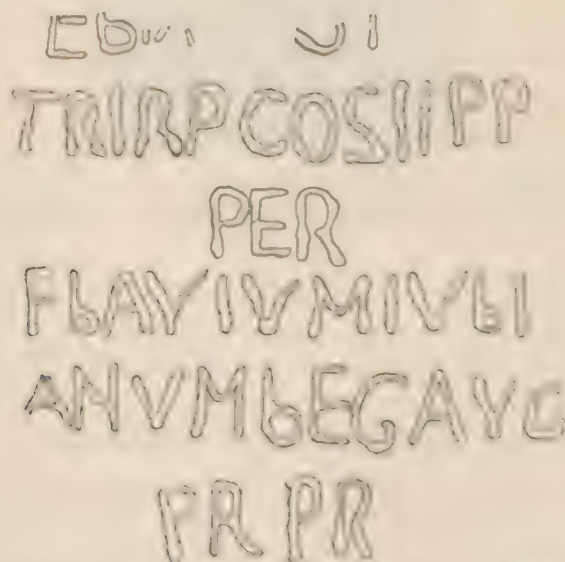 TRIRP COS II PP
PER
FLAVIVM IVLI
ANVM LEG AVG
PR PR